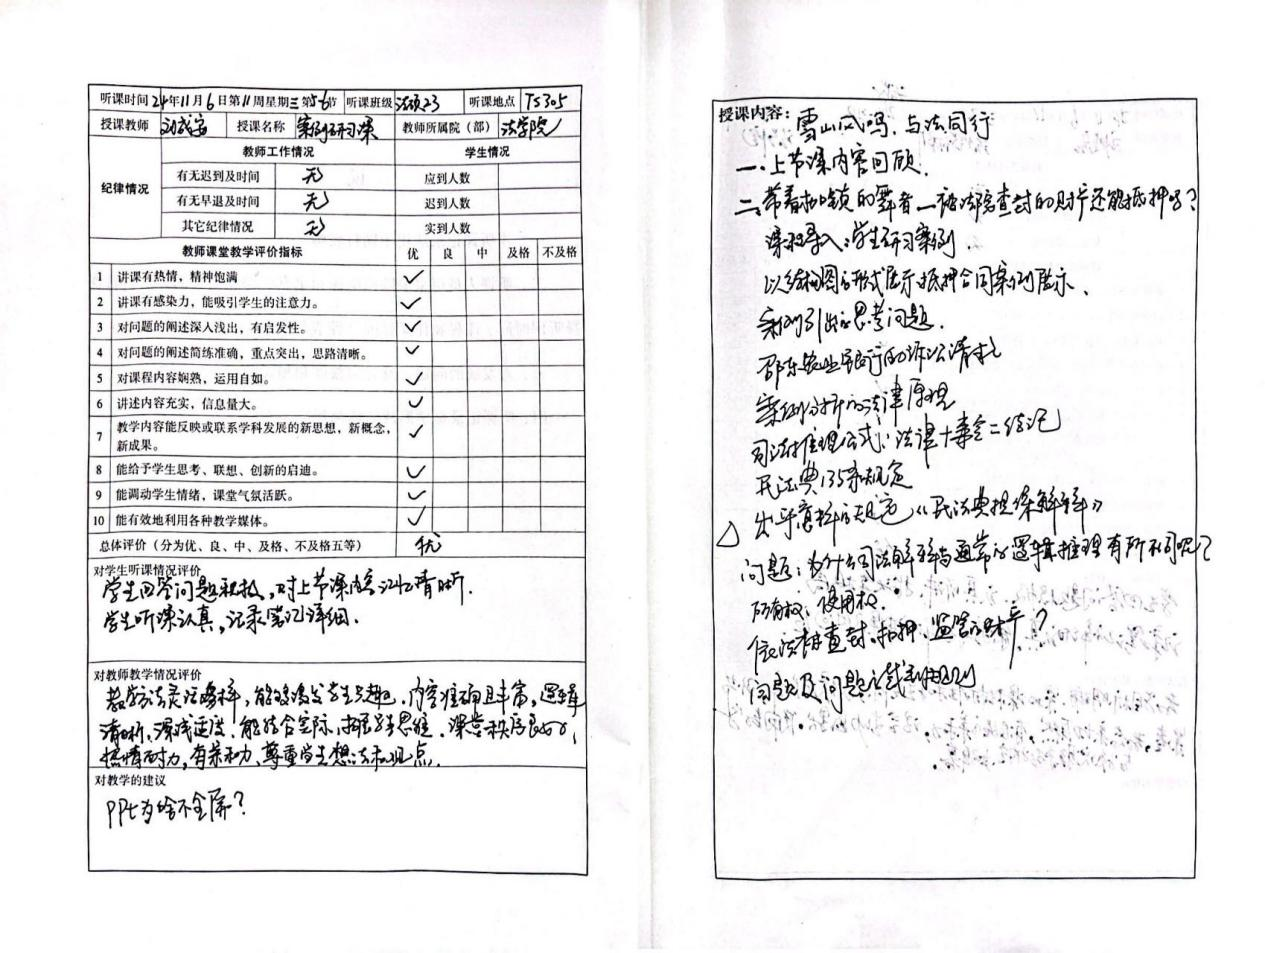 听课时间 24年11月6日第11周星期三第5-6节 听课班级 法硕23 听课地点 TS305
授课教师 授课名称 案例研习课 教师所属院（部） 法学院
纪律情况 教师工作情况 学生情况
有无迟到及时间 无 应到人数
有无早退及时间 无 迟到人数
其它纪律情况 无 实到人数
教师课堂教学评价指标 优 良 中 及格 不及格
1 讲课有热情，精神饱满 ✓
2 讲课有感染力，能吸引学生的注意力。 ✓
3 对问题的阐述深入浅出，有启发性。 ✓
4 对问题的阐述简练准确，重点突出，思路清晰。 ✓
5 对课程内容娴熟，运用自如。 ✓
6 讲述内容充实，信息量大。 ✓
7 教学内容能反映或联系学科发展的新思想，新概念，
新成果。 ✓
8 能给予学生思考、联想、创新的启迪。 ✓
9 能调动学生情绪，课堂气氛活跃。 ✓
10 能有效地利用各种教学媒体。 ✓
总体评价（分为优、良、中、及格、不及格五等） 优
对学生听课情况评价
学生回答问题积极，对上节课内容记忆清晰.
学生听课认真，记录笔记详细.
对教师教学情况评价
教学方法灵活多样，能够激发学生兴趣，内容准确且丰富，逻辑
清晰，深浅适度，能结合实际，拓展学生思维，课堂秩序良好，
热情耐力，有亲和力、尊重学生想法和观点.
对教学的建议
PPt为啥不全屏？
授课内容：
雪山 与法同行
一.上节课内容回顾.
二、带着枷锁的舞者—被法院查封的财产还能抵押吗？
课程导入：学生研习案例.
以结构图的形式展示抵押合同案例展示.
案例引出的思考问题.
邵东农业银行的诉讼请求
案例分析的法律原理
司法推理公式：法律+事实=结论
民法典135条规定
△ 出乎意料的规定《民法典担保解释》
问题：为什么司法解释与通常的逻辑推理有所不同呢？
所有权：使用权.
依法被查封、扣押、监管的财产？
问题及问题